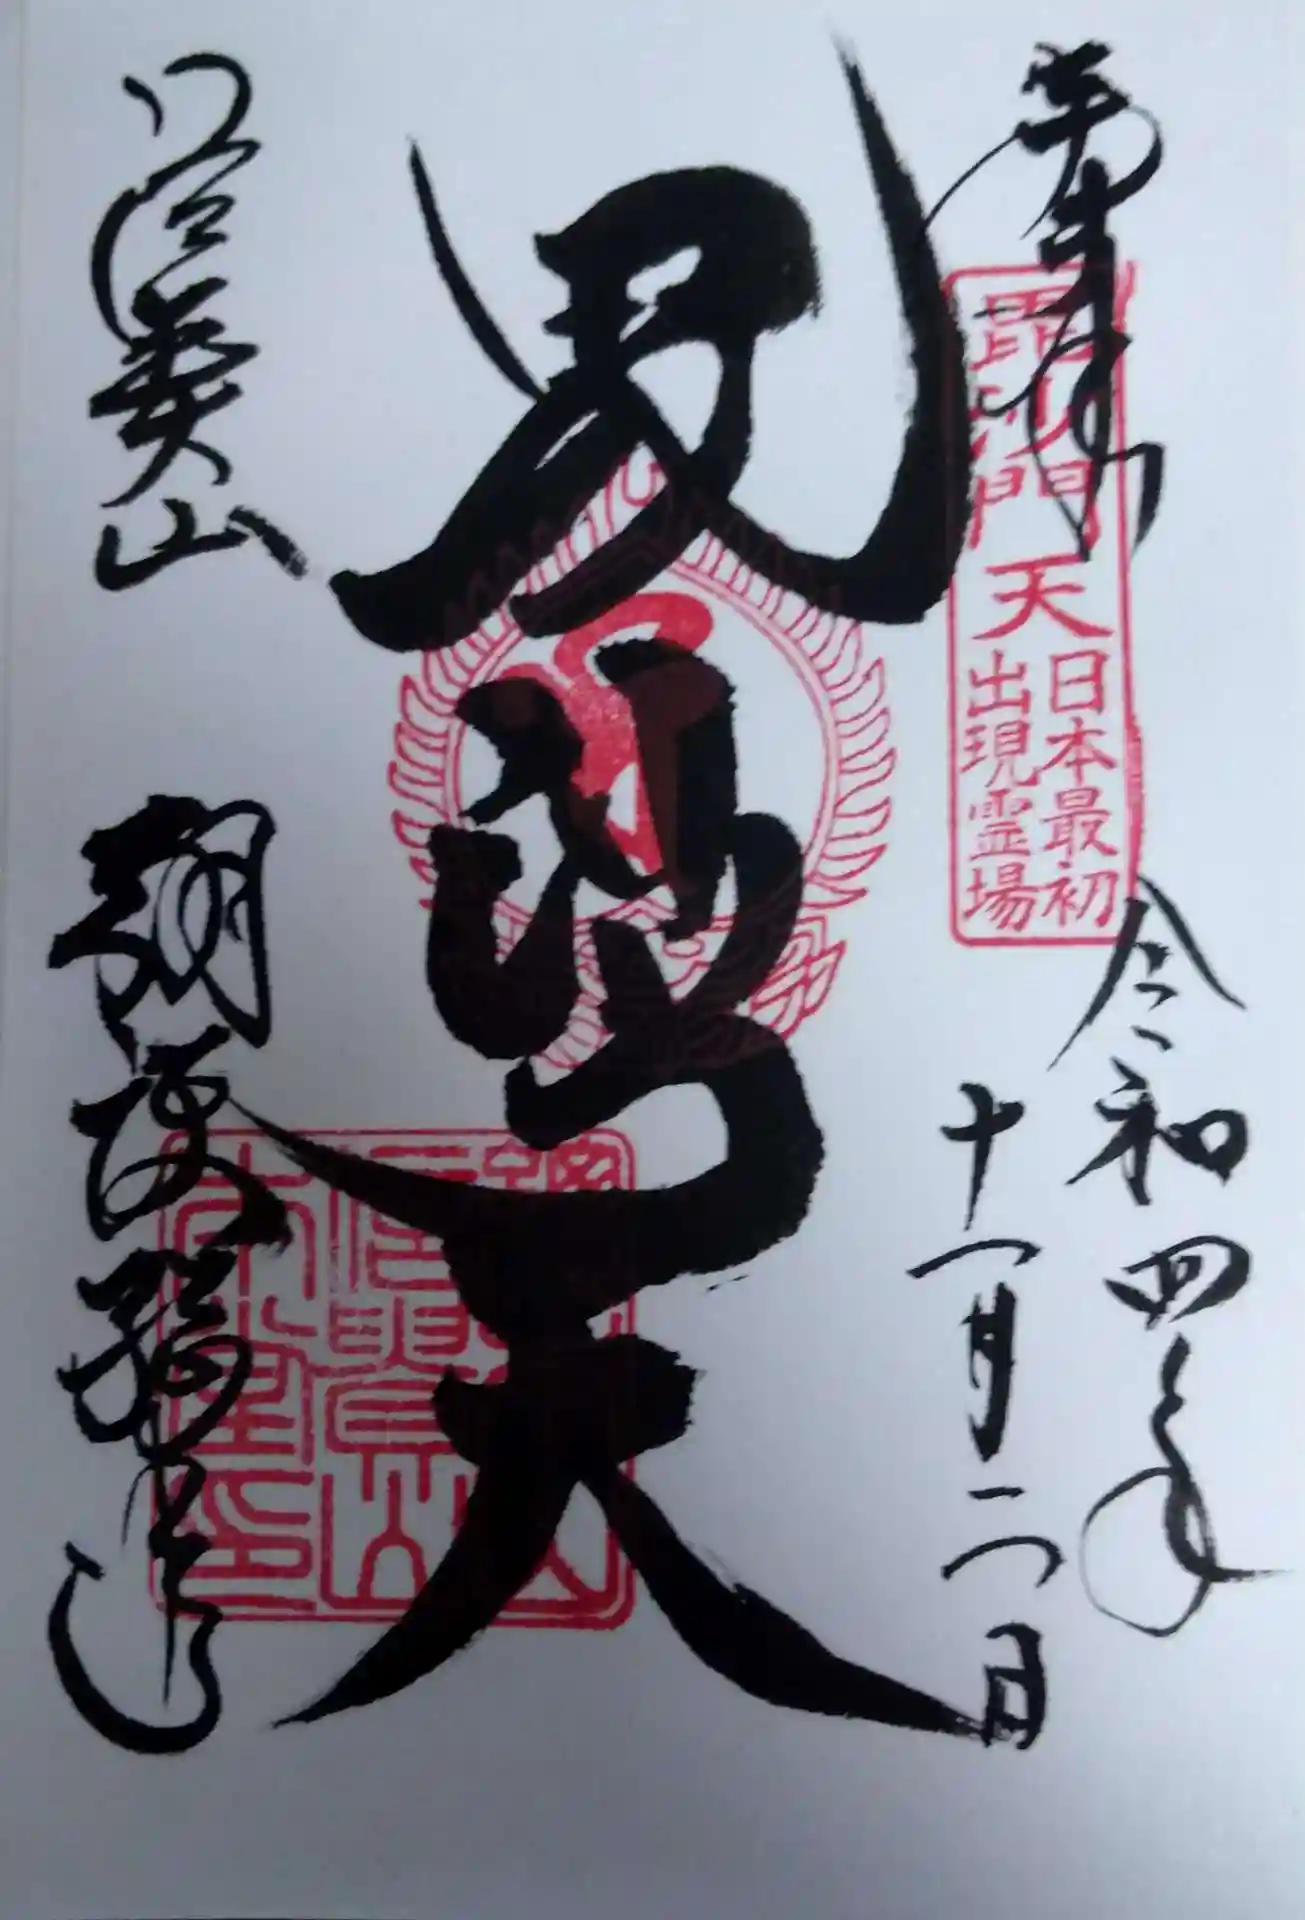 奉拝
毘沙門天
日本最初
出現霊場
令和四年
十一月二日
毘沙門天
信貴山
朝護孫子寺